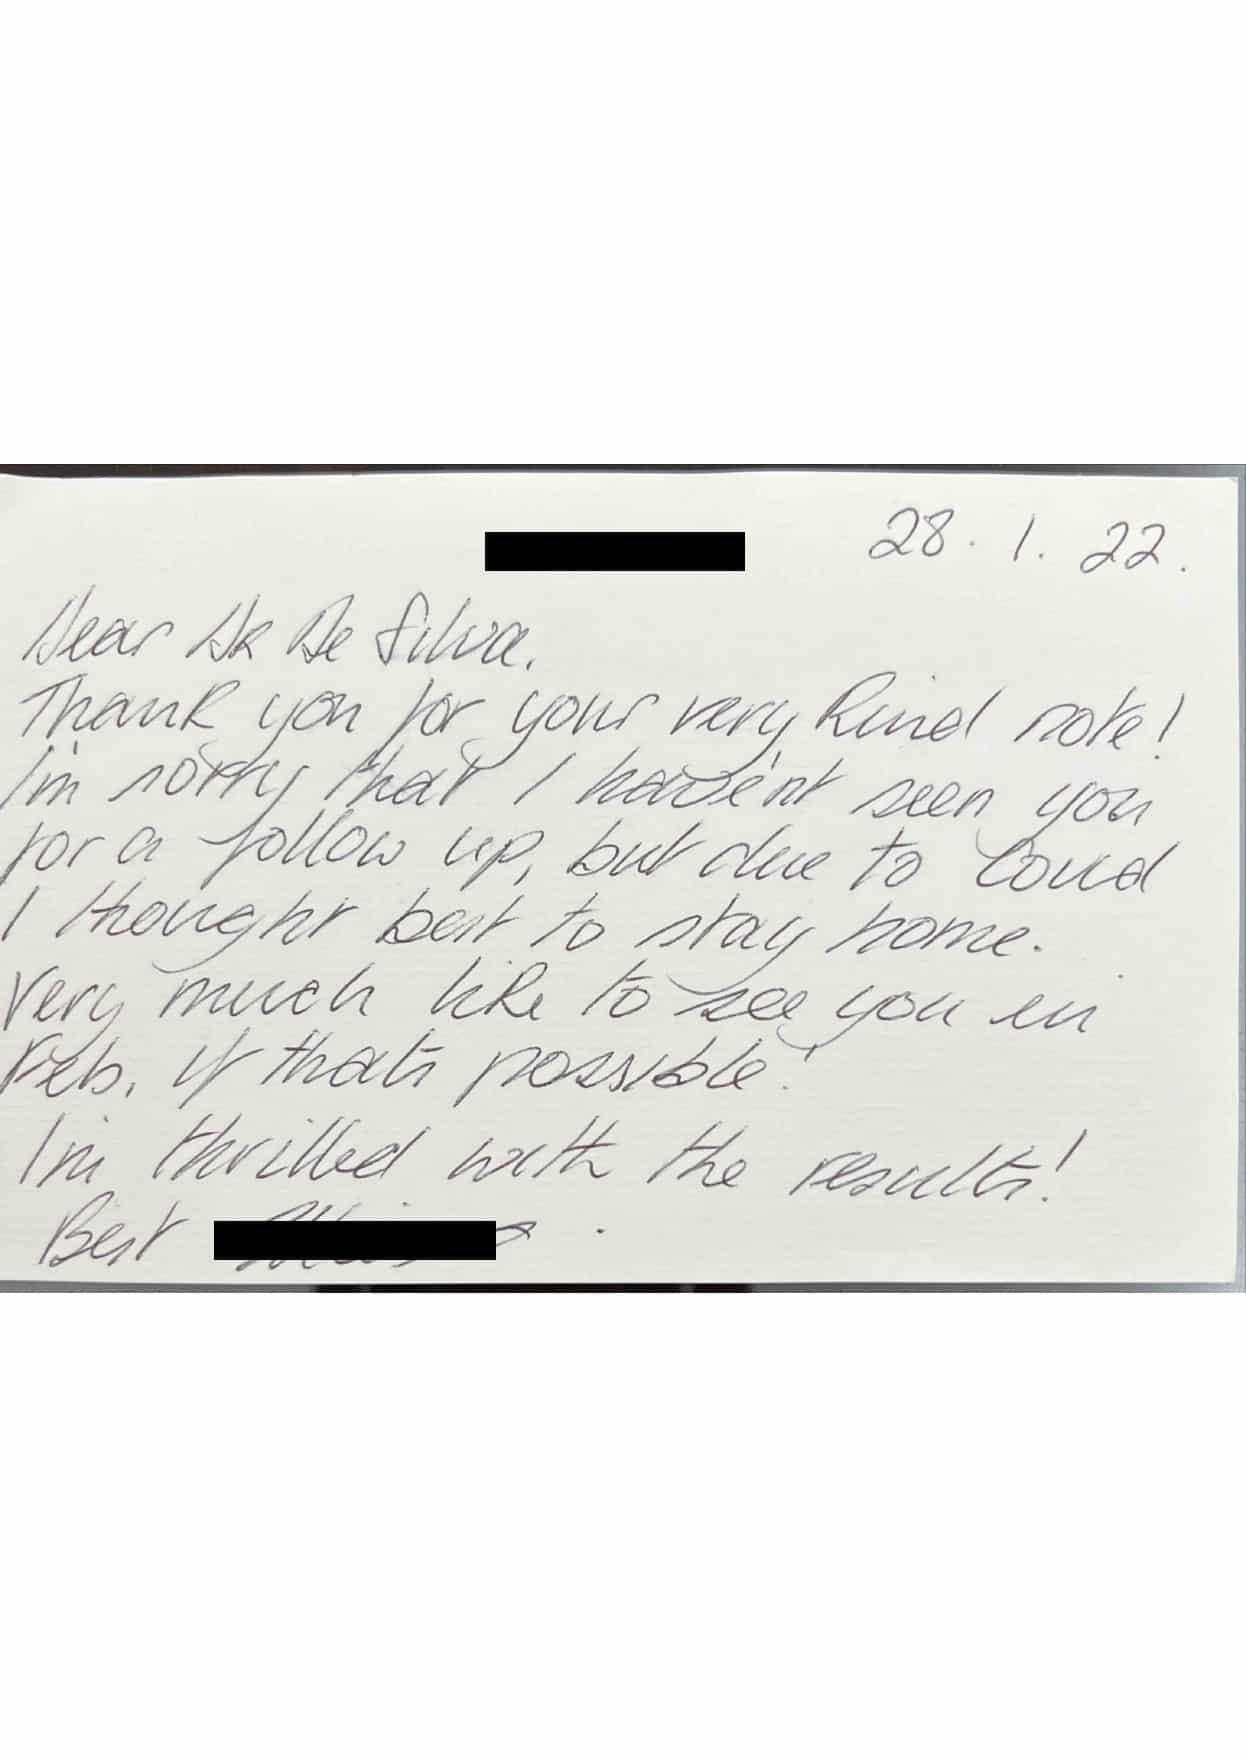 28. 1. 22.
Dear Dr De Silva.
Thank you for your very kind note!
I'm sorry that I have'nt seen you
for a follow up, but due to Covid
I thought best to stay home.
Very much like to see you in
Feb. if thats possible!
Im thrilled with the results!
Best